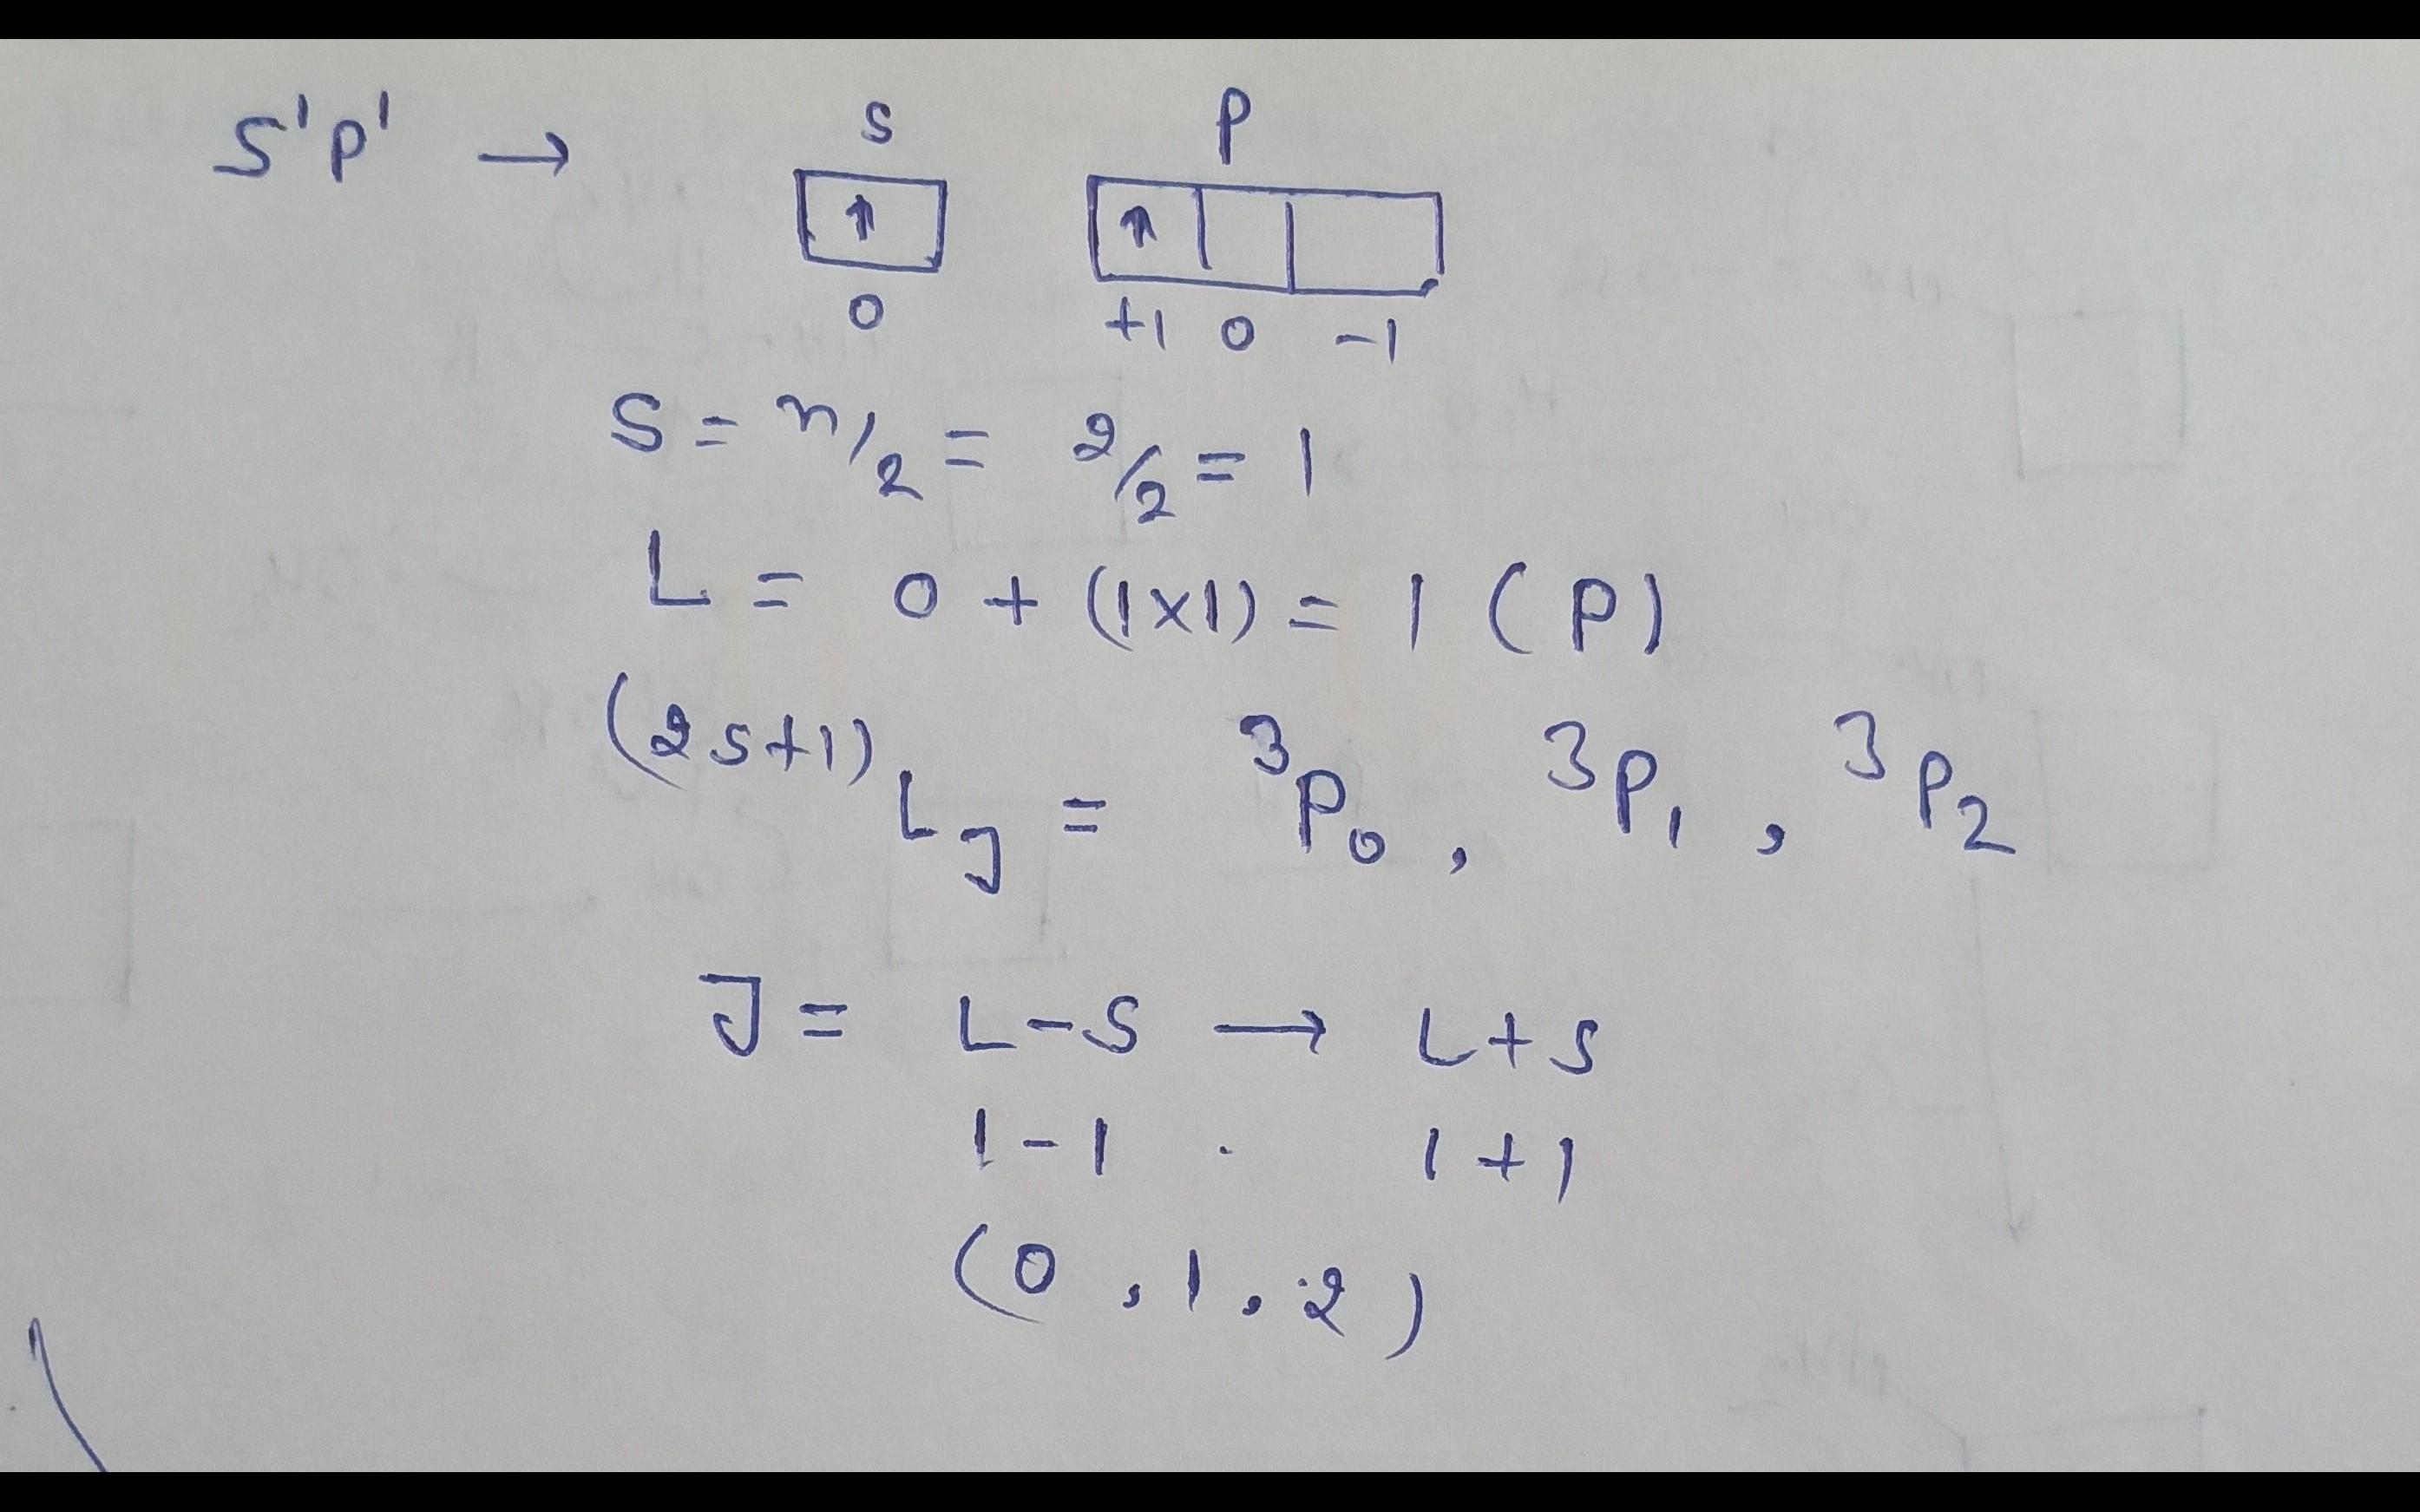 S¹P¹ → S P
↑ ↑
0 +1 0 -1
S = n/2 = 2/2 = 1
L = 0 + (1×1) = 1 (P)
(2S+1)L_J = ³P₀, ³P₁, ³P₂
J = L-S → L+S
1-1 1+1
(0, 1, 2)